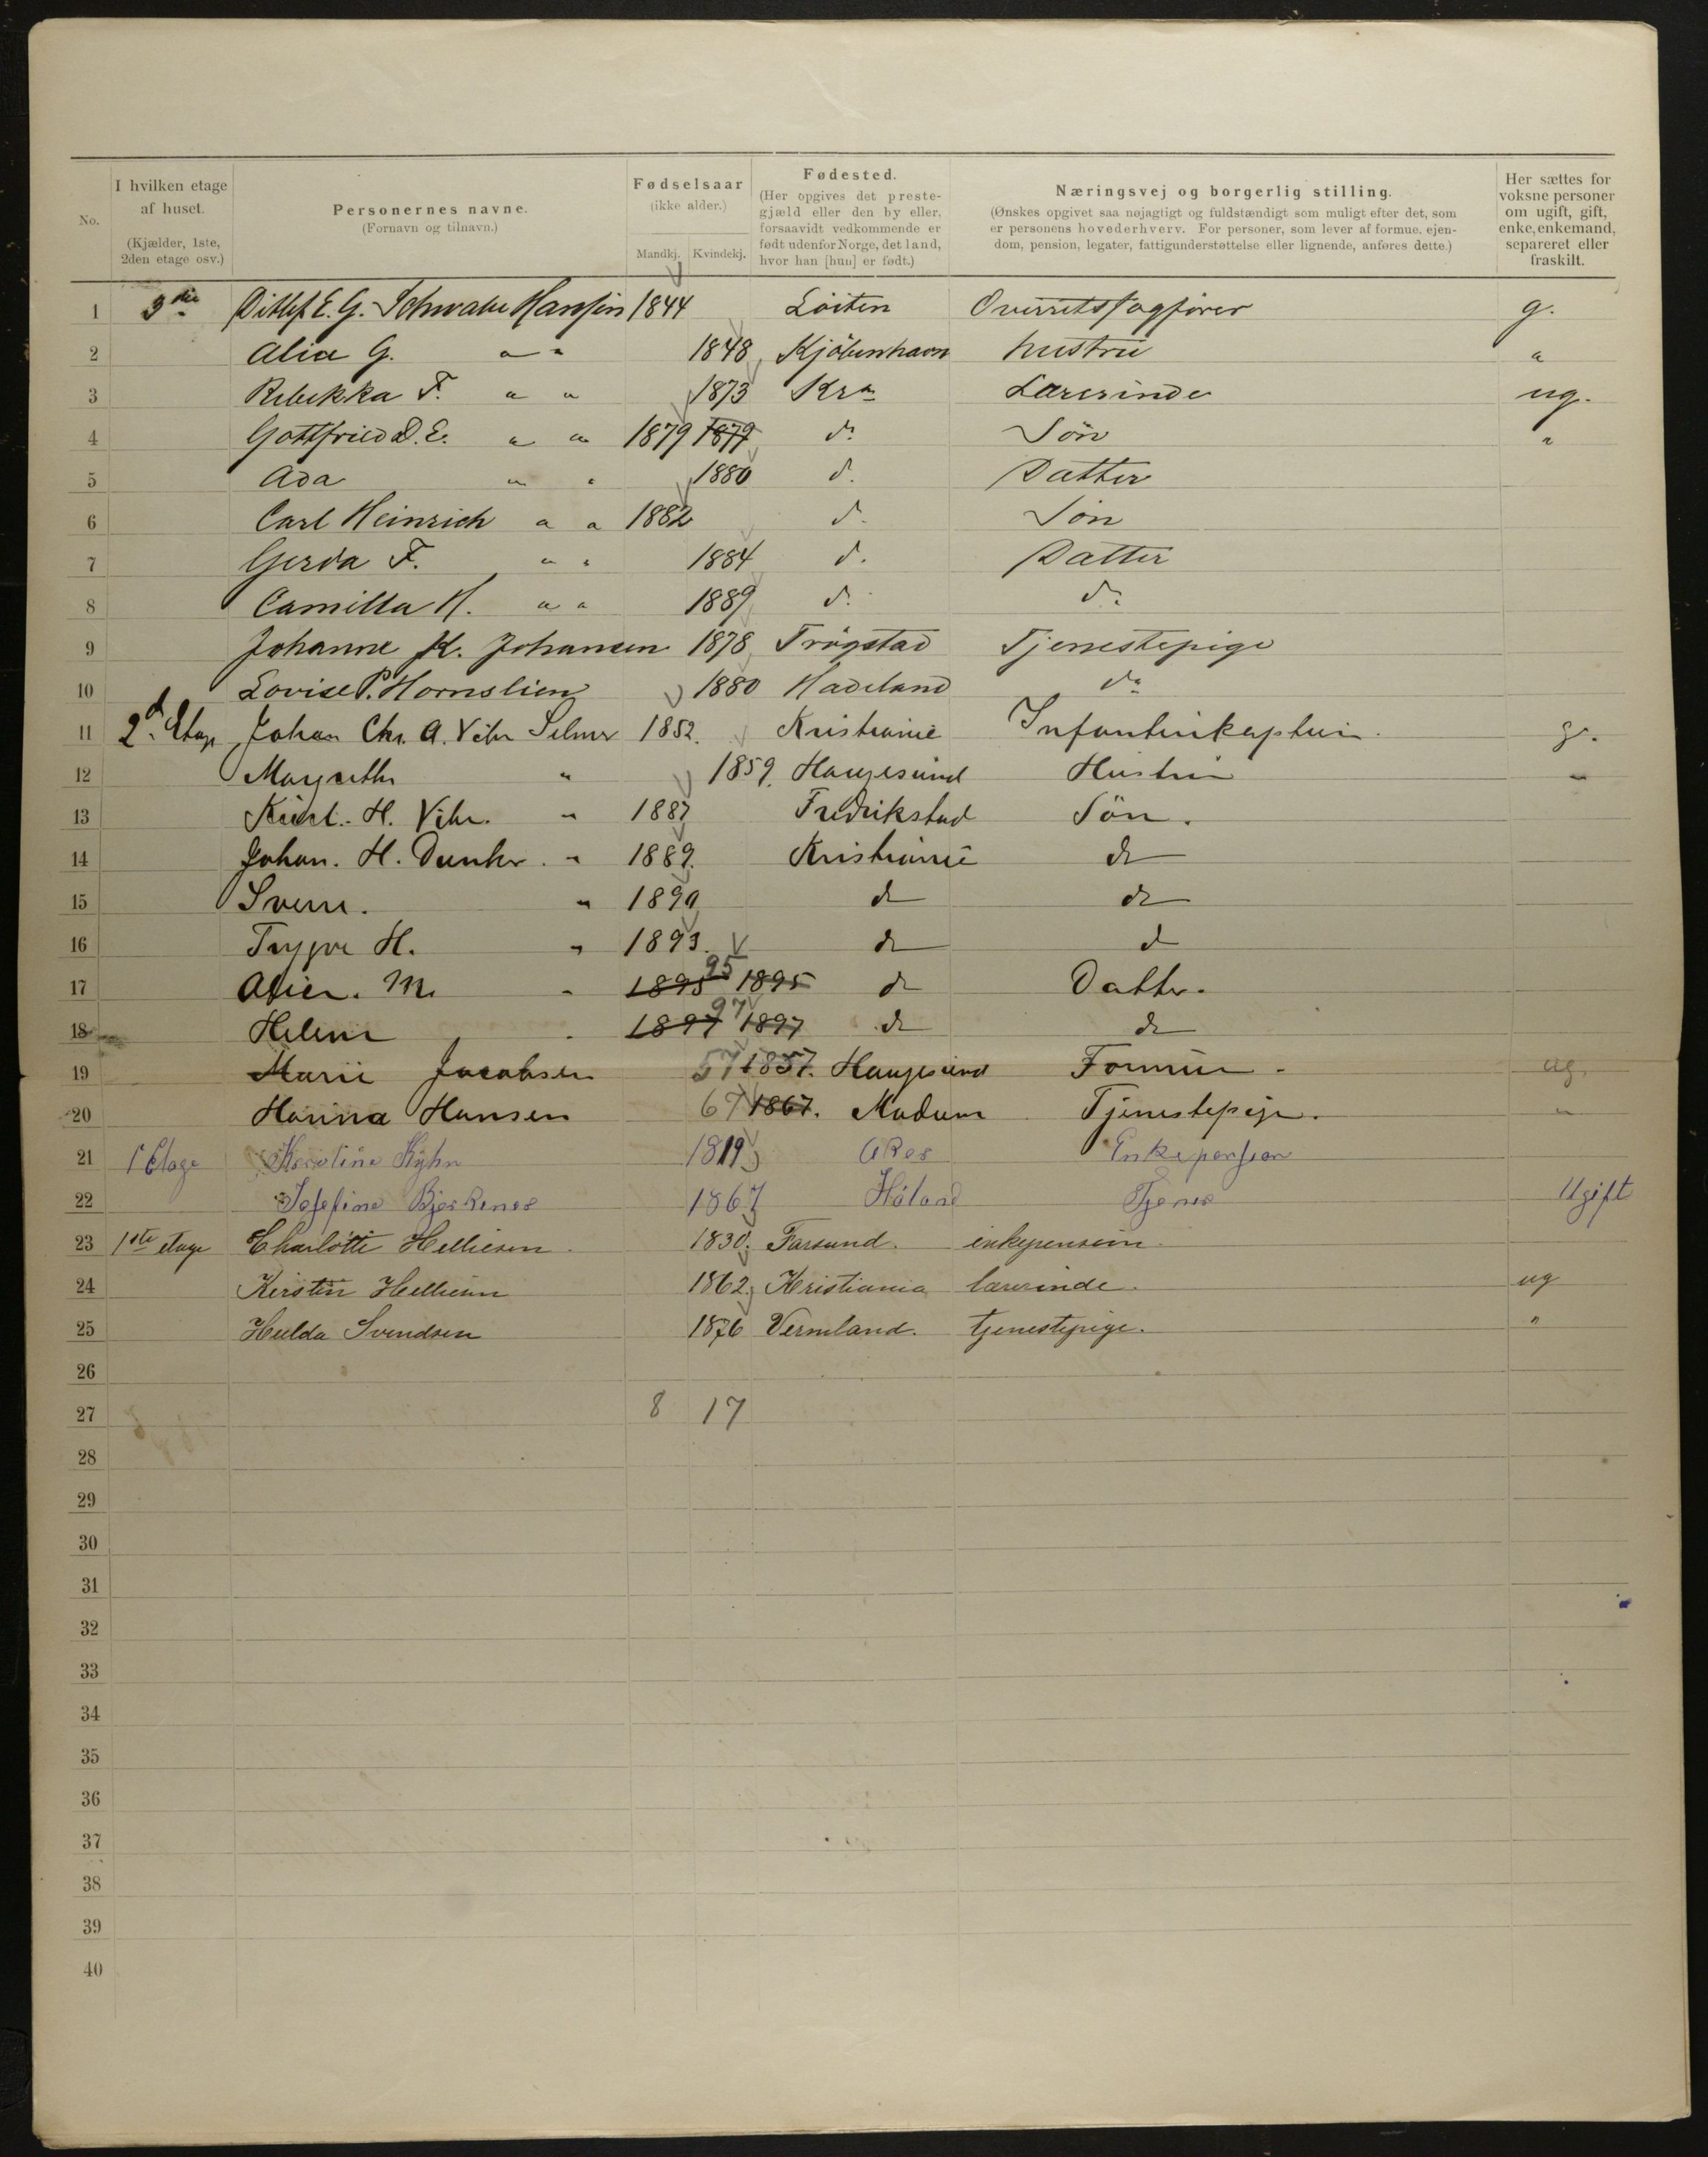 No.
I hvilken etage af huset. (Kjælder, 1ste, 2den etage osv.)
Personernes navne. (Fornavn og tilnavn.)
Fødselsaar (ikke alder.) Mandkj. Kvindekj.
Fødested. (Her opgives det prestegjæld eller den by eller, forsaavidt vedkommende er født udenfor Norge, det land, hvor han [hun] er født.)
Næringsvej og borgerlig stilling. (Ønskes opgivet saa nøjagtigt og fuldstændigt som muligt efter det, som er personens hovederhverv. For personer, som lever af formue, ejendom, pension, legater, fattigunderstøttelse eller lignende, anføres dette.)
Her sættes for voksne personer om ugift, gift, enke, enkemand, separeret eller fraskilt.
1 3die Ditlef E. G. Schwabe Hanssen 1844 Löiten Overretssagförer g.
2 Alia G. " " 1848 Kjöbenhavn hustru "
3 Rebekka F. " " 1873 Kra Lærerinde ug.
4 Gottfried D. E. " " 1879 1879 do Sön "
5 Ada " " 1880 d. Datter
6 Carl Heinrich " " 1882 d. Sön
7 Gerda F. " " 1884 d. Datter
8 Camilla H. " " 1889 d. do
9 Johanne K. Johansen 1878 Trögstad Tjenestepige
10 Lovise P. Hornslien 1880 Hadeland do
11 2d. Etage Johan Chr. A. Vibe Selmer 1852. Kristiania Infanterikaptein. g.
12 Margrethe " 1859. Haugesund Hustru "
13 H. Vibe. " 1887 Fredrikstad Sön.
14 Johan. H. Dunker. " 1889. Kristiania do
15 Sverre. " 1890 do do
16 Trygve H. " 1893. do d
17 M. " 1895 95 1895 do Datter.
18 Helene " 1897 97 1897 do do
19 Marie Jacobsen 57 1857. Haugesund Formue. ug.
20 Hanna Hansen 67 1867. Modum Tjenestepige. "
21 1 Etage Karoline Kyhn 1819 Aker Enkepension
22 Josefine Bjerkenes 1867 Höland Tjener Ugift
23 1ste etage Charlotte Helliesen. 1830. Farsund. enkepension.
24 Kirstin Helliesen 1862. Kristiania lærerinde. ug
25 Hulda Svendsen 1876 Vermland. tjenestepige. "
26
27 8 17
28
29
30
31
32
33
34
35
36
37
38
39
40